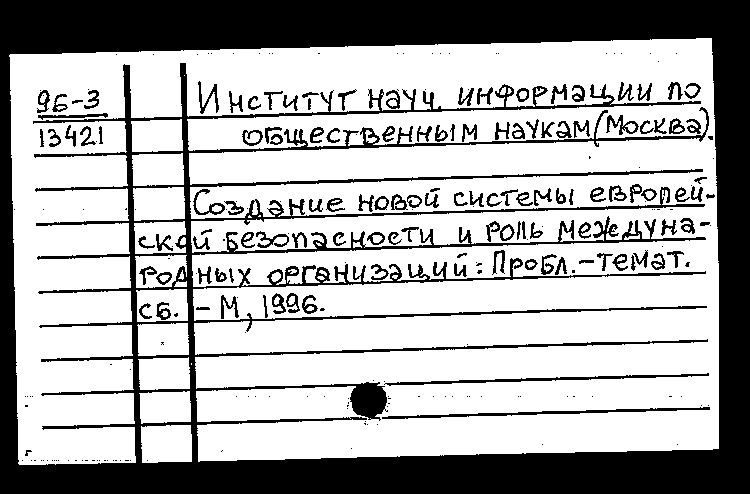 9Б-3
13421
Институт науч. информации по
общественным наукам (Москва).
Создание новой системы европей-
ской безопасности и роль междуна-
родных организаций: Пробл.-темат.
сб. - М, 1996.